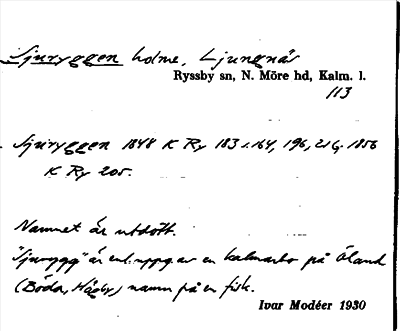 Sjuryggen holme, Ljungnäs
Ryssby sn, N. Möre hd, Kalm. l.
113
Sjuryggen 1848 K Ry 183 s. 164, 196, 216. 1856
K Ry 205.
Namnet är utdött.
"Sjurygg" är enl. uppg. av en kalmarbo på Öland
(Böda, Högby) namn på en fisk.
Ivar Modéer 1930